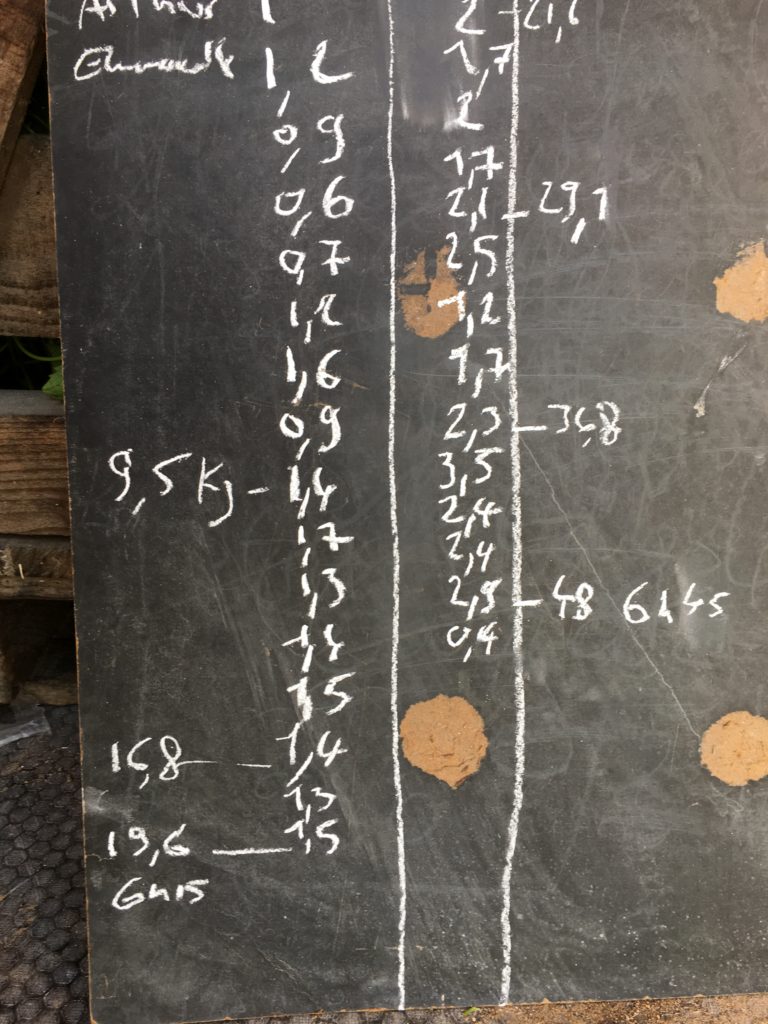 Arthur 1 2 - 21,6
1,2 1,7
0,9 2
0,6 1,7
2,1 - 29,1
0,7 2,5
1,2 1,2
1,6 1,7
0,9 2,3 - 36,8
9,5 Kg - 1,4 3,5
2,4
1,7 2,4
1,3 2,9 - 48 6h45
1,4 0,4
1,5
16,8 - - 1,4
1,3
19,6 - 1,5
6h15